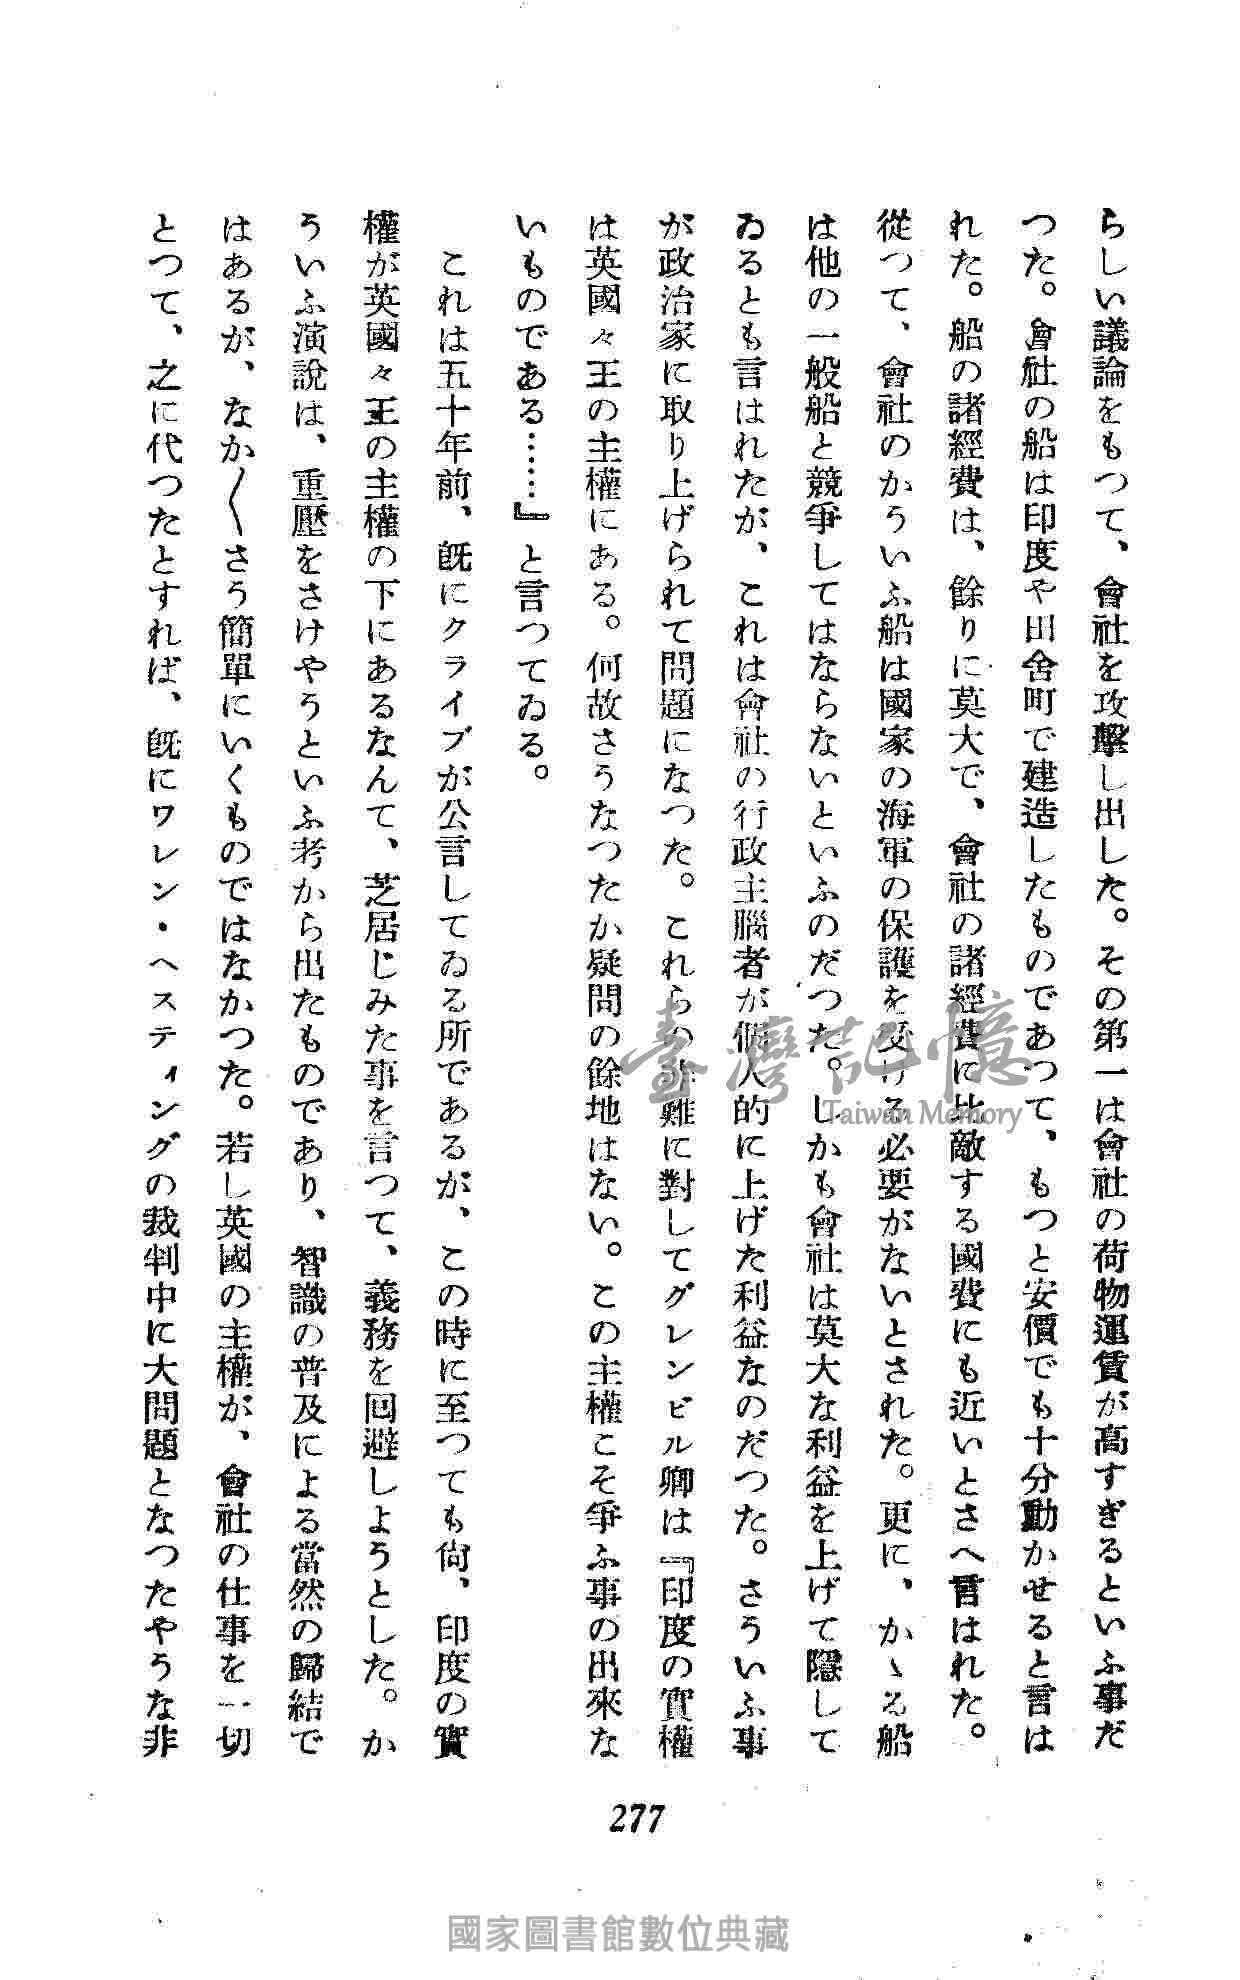 らしい議論をもつて、會社を攻擊し出した。その第一は會社の荷物運賃が高すぎるといふ事だ
つた。會社の船は印度や田舍町で建造したものであつて、もつと安價でも十分動かせると言は
れた。船の諸經費は、餘りに莫大で、會社の諸經費に比敵する國費にも近いとさへ言はれた。
從つて、會社のかういふ船は國家の海軍の保護を受ける必要がないとされた。更に、かゝる船
は他の一般船と競爭してはならないといふのだつた。しかも會社は莫大な利益を上げて隱して
ゐるとも言はれたが、これは會社の行政主腦者が個人的に上げた利益なのだつた。さういふ事
が政治家に取り上げられて問題になつた。これらの非難に對してグレンビル卿は『印度の實權
は英國々王の主權にある。何故さうなつたか疑問の餘地はない。この主權こそ爭ふ事の出來な
いものである……』と言つてゐる。
これは五十年前、既にクライブが公言してゐる所であるが、この時に至つても尙、印度の實
權が英國々王の主權の下にあるなんて、芝居じみた事を言つて、義務を回避しようとした。か
ういふ演說は、重壓をさけやうといふ考から出たものであり、智識の普及による當然の歸結で
はあるが、なか〳〵さう簡單にいくものではなかつた。若し英國の主權が、會社の仕事を一切
とつて、之に代つたとすれば、既にワレン・ヘスティングの裁判中に大問題となつたやうな非
277
臺灣記憶
Taiwan Memory
國家圖書館數位典藏